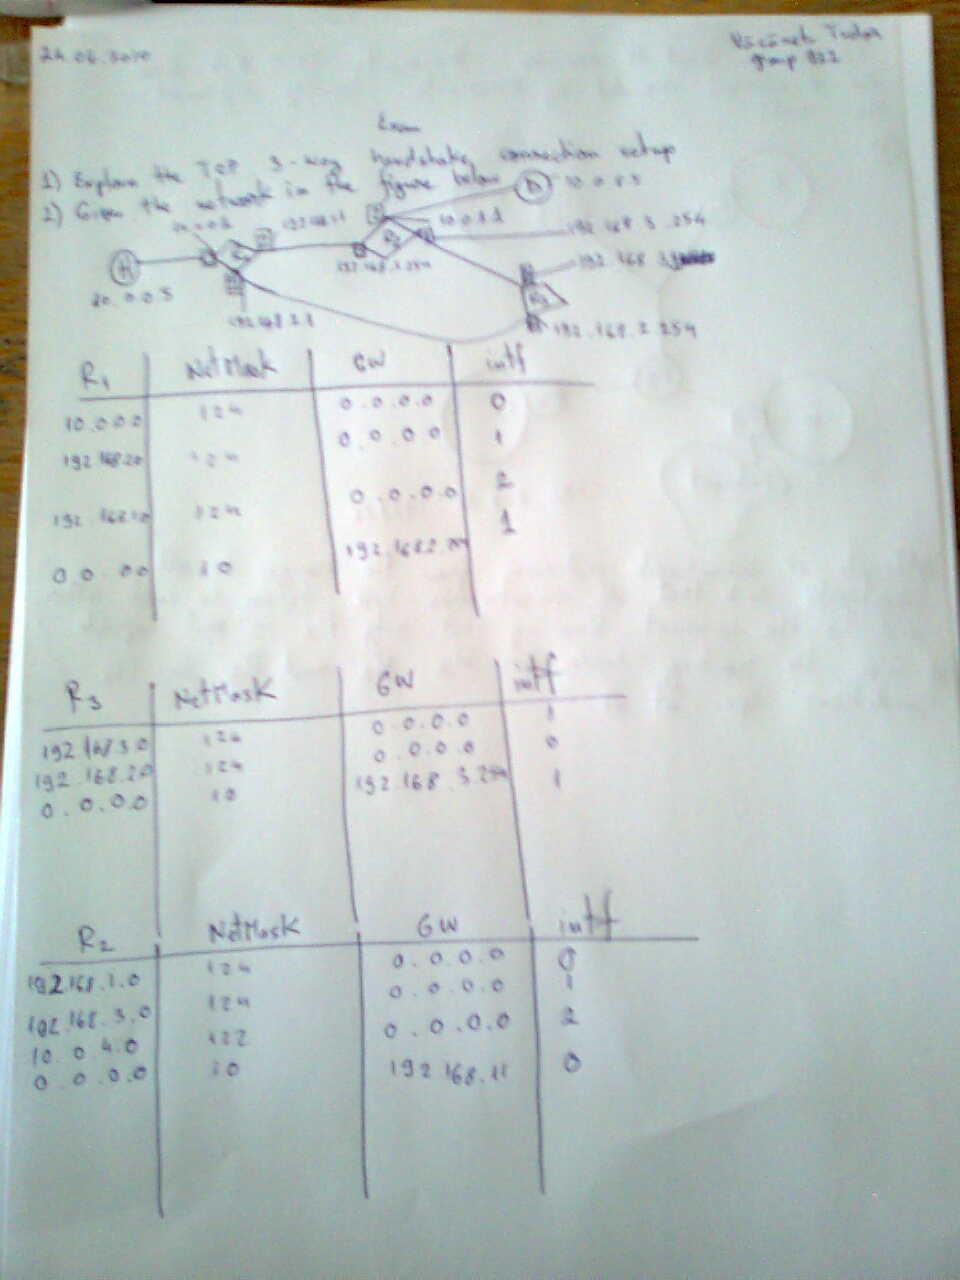 24.06.2010
Tudor
group 922
Exam
1) Explain the TCP 3-way handshake, connection setup
2) Given the network in the figure below
D
192.168.3.254
R2
H
R1
192.168.1.254
192.168.3
R3
192.168.2.1
192.168.2.254
R1 NetMask GW intf
10.0.0.0 /24 0.0.0.0 0
192.168.2.0 /24 0.0.0.0 1
192.168.1.0 /24 0.0.0.0 2
0.0.0.0 /0 192.168.2.254 1
R3 NetMask GW intf
192.168.3.0 /24 0.0.0.0 1
192.168.2.0 /24 0.0.0.0 0
0.0.0.0 /0 192.168.3.254 1
R2 NetMask GW intf
192.168.1.0 /24 0.0.0.0 0
192.168.3.0 /24 0.0.0.0 1
10.0.4.0 /22 0.0.0.0 2
0.0.0.0 /0 192.168.1.1 0